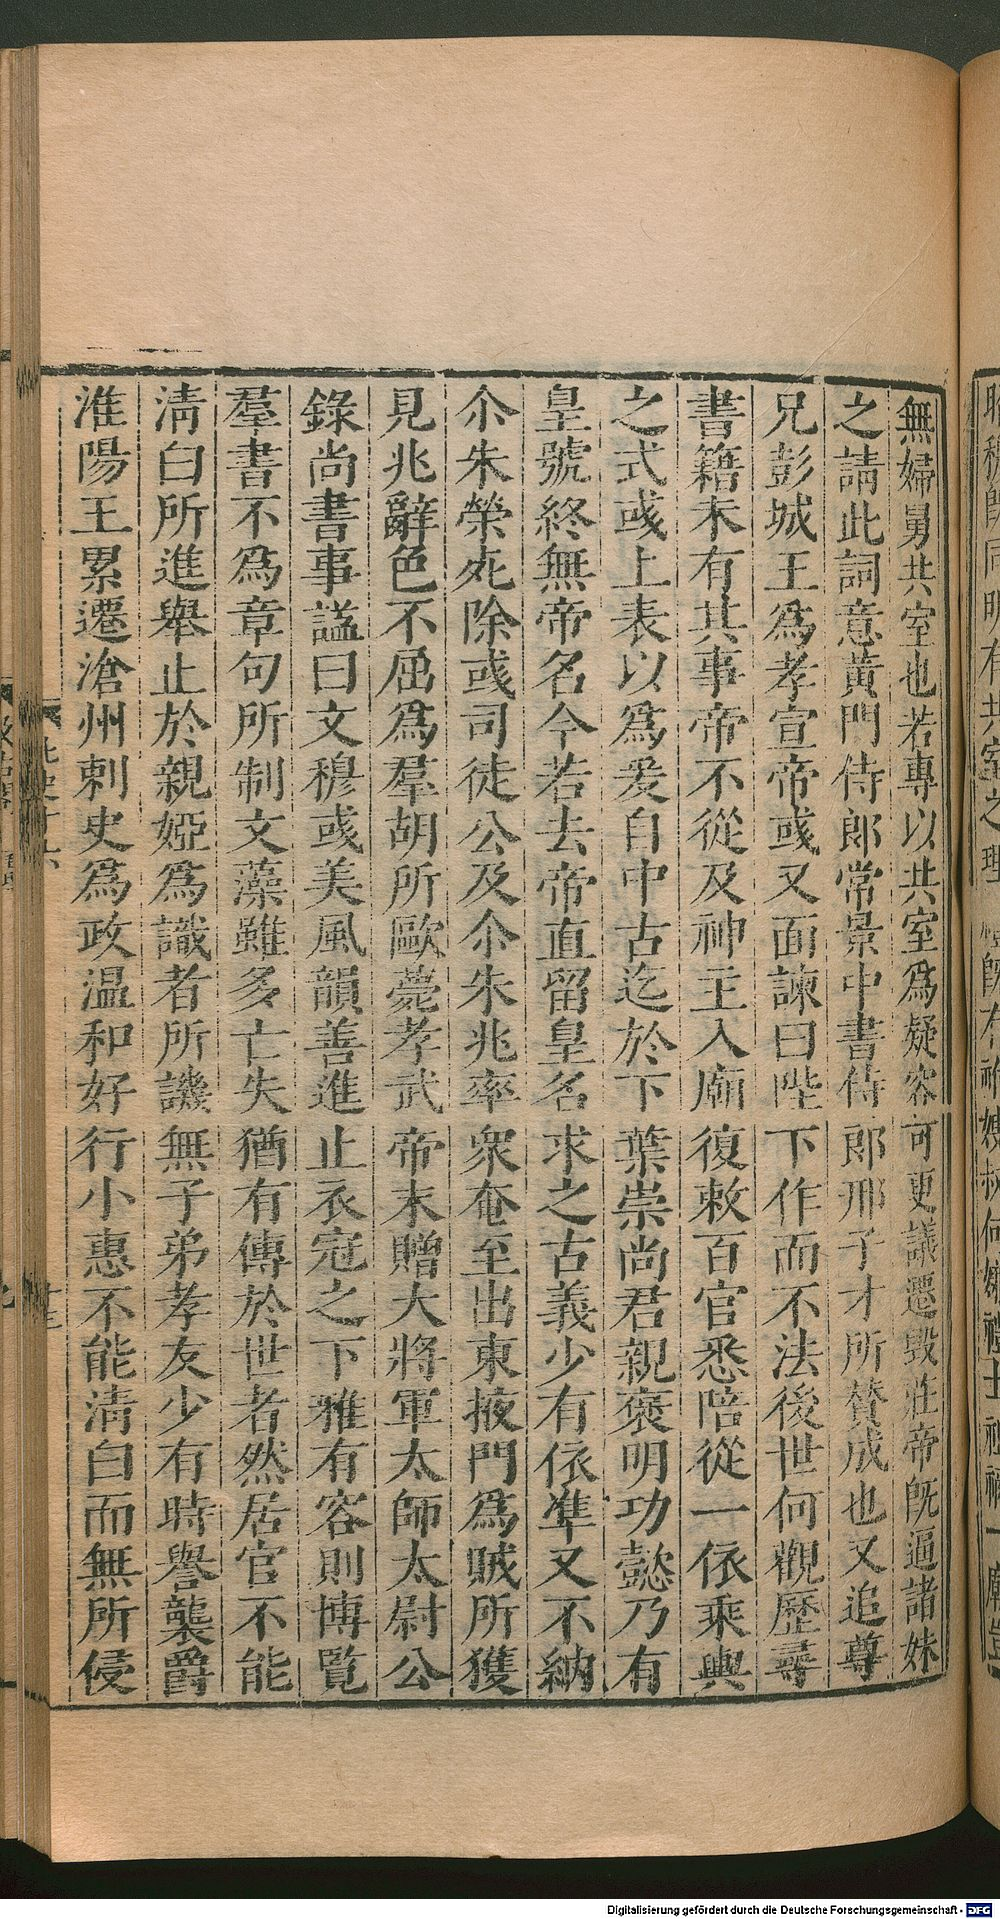 無婦舅共室也若專以共室爲疑容可更議遷毀莊帝旣逼諸妹
之請此詞意黃門侍郎常景中書侍郎邢子才所贊成也又追尊
兄彭城王爲孝宣帝彧又面諫曰陛下作而不法後世何觀歷尋
書籍未有其事帝不從及神主入廟復敕百官悉陪從一依乘輿
之式彧上表以爲爰自中古迄於下葉崇尚君親褒明功懿乃有
皇號終無帝名今若去帝直留皇名求之古義少有依準又不納
尒朱榮死除彧司徒公及尒朱兆率衆奄至出東掖門爲賊所獲
見兆辭色不屈爲羣胡所歐薨孝武帝末贈大將軍太師太尉公
錄尚書事諡曰文穆彧美風韻善進止衣冠之下雅有容則博覽
羣書不爲章句所制文藻雖多亡失猶有傳於世者然居官不能
清白所進舉止於親婭爲識者所譏無子弟孝友少有時譽襲爵
淮陽王累遷滄州刺史爲政温和好行小惠不能清白而無所侵
Digitalisierung gefördert durch die Deutsche Forschungsgemeinschaft - DFG